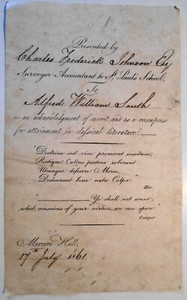 Presented by
Charles Frederick Johnson Esq
Surveyor Accountant to St Pauls School,
To
Alfred William South
in an acknowledgment of merit, and as a recompense
for attainment in classical literature.
"Doctrina sed vim promovet insitam,
Rectique Cultus pectora roborant
Utcunque defecere Mores,
Dedecorant bene nata Culpæ."
Hor
Ye shall not want
what, conscious of your virtues, we can spare"
Cowper
Mercers Hall,
17th July 1861